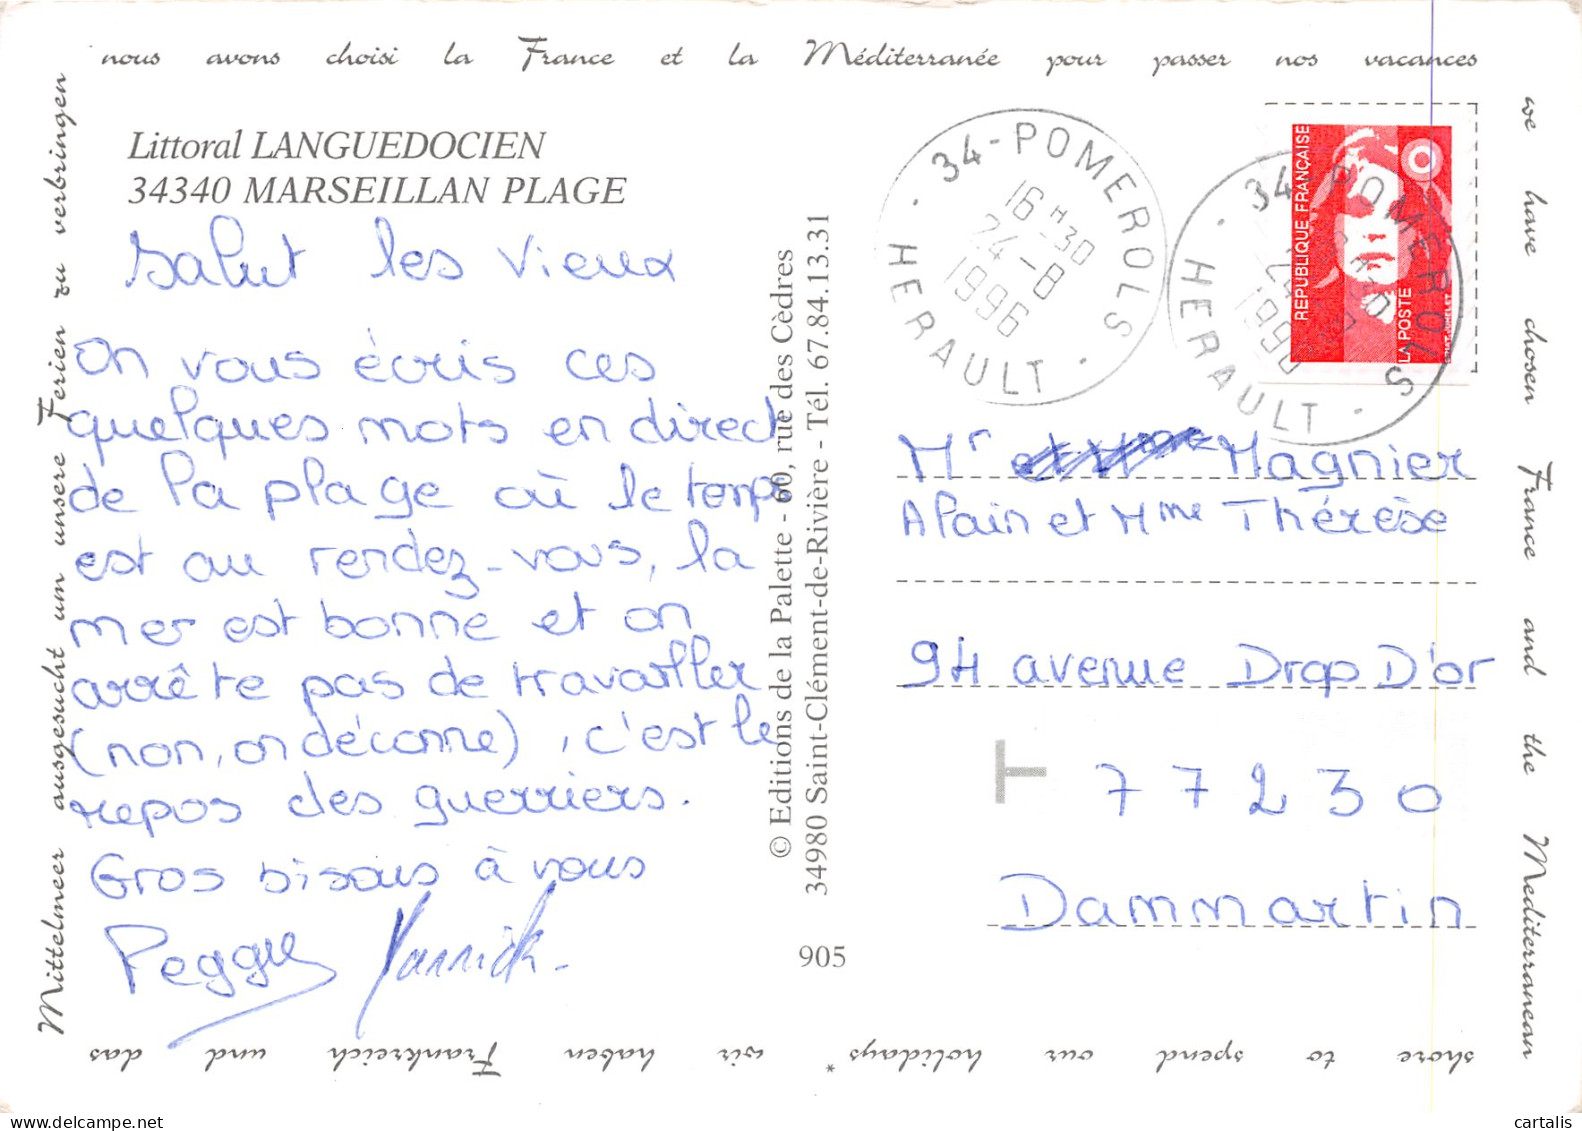 nous avons choisi la France et la Méditerranée pour passer nos vacances
we have chosen France and the Mediterranean
shore to spend our holidays *
wir haben Frankreich und das
Mittelmeer ausgesucht um unsere Ferien zu verbringen
Littoral LANGUEDOCIEN
34340 MARSEILLAN PLAGE
Salut les vieux
On vous écris ces
quelques mots en direct
de la plage où le temps
est au rendez-vous, la
mer est bonne et on
arrête pas de travailler
(non, on déconne), c'est le
repos des guerriers.
Gros bisous à vous
Peggy Yannick
© Editions de la Palette - 60, rue des Cèdres
34980 Saint-Clément-de-Rivière - Tél. 67.84.13.31
905
34-POMEROLS
16H30
24-8
1996
HERAULT
34-POMEROLS
1996
HERAULT
REPUBLIQUE FRANÇAISE
LA POSTE
Mr et Mme Magnier
Alain et Mme Thérèse
94 avenue Drap D'or
T
77230
Dammartin
cartalis